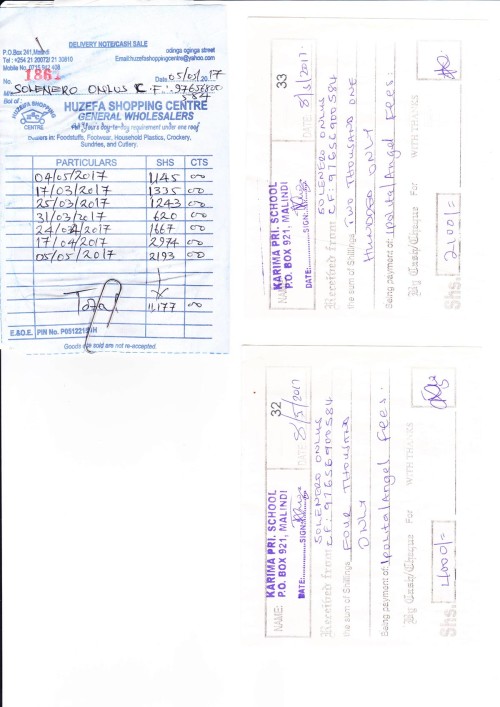 DELIVERY NOTE/CASH SALE
P.O.Box 241, Malindi
odinga oginga street
Tel : +254 21 20073/ 21 30810
Email:huzefashoppingcentre@yahoo.com
Mobile No. 0715
No. 1861
Date 05/05/2017
SOLENERO ONLUS C.F.: 97656900
584
Bot of :
HUZEFA SHOPPING CENTRE
GENERAL WHOLESALERS
HUZEFA SHOPPING
CENTRE
For all your day-to-day requirement under one roof
Dealers in: Foodstuffs, Footwear, Household Plastics, Crockery,
Sundries, and Cutlery.
PARTICULARS SHS CTS
04/05/2017 1145 00
17/03/2017 1335 00
25/03/2017 1243 00
31/03/2017 620 00
24/04/2017 1667 00
17/04/2017 2974 00
05/05/2017 2193 00
Total 11,177 00
E.&O.E. PIN No. P0512215
Goods once sold are not re-accepted.
33
KARIMA PRI. SCHOOL
P.O. BOX 921, MALINDI
NAME:
DATE 8/5/2017
DATE:..............SIGN:
Received from SOLENERO ONLUS
CF: 97656900584
the sum of Shillings TWO THOUSAND ONE
HUNDRED ONLY
Being payment of: Ipolita/Angel Fees:
By Cash/Cheque For WITH THANKS
Shs. 2100/=
32
KARIMA PRI. SCHOOL
P.O. BOX 921, MALINDI
NAME:
DATE 8/5/2017
DATE:..............SIGN:
Received from SOLENERO ONLUS
CF: 97656900584
the sum of Shillings FOUR THOUSAND
ONLY
Being payment of: Ipolita/Angel Fees:
By Cash/Cheque For WITH THANKS
Shs. 4000/=